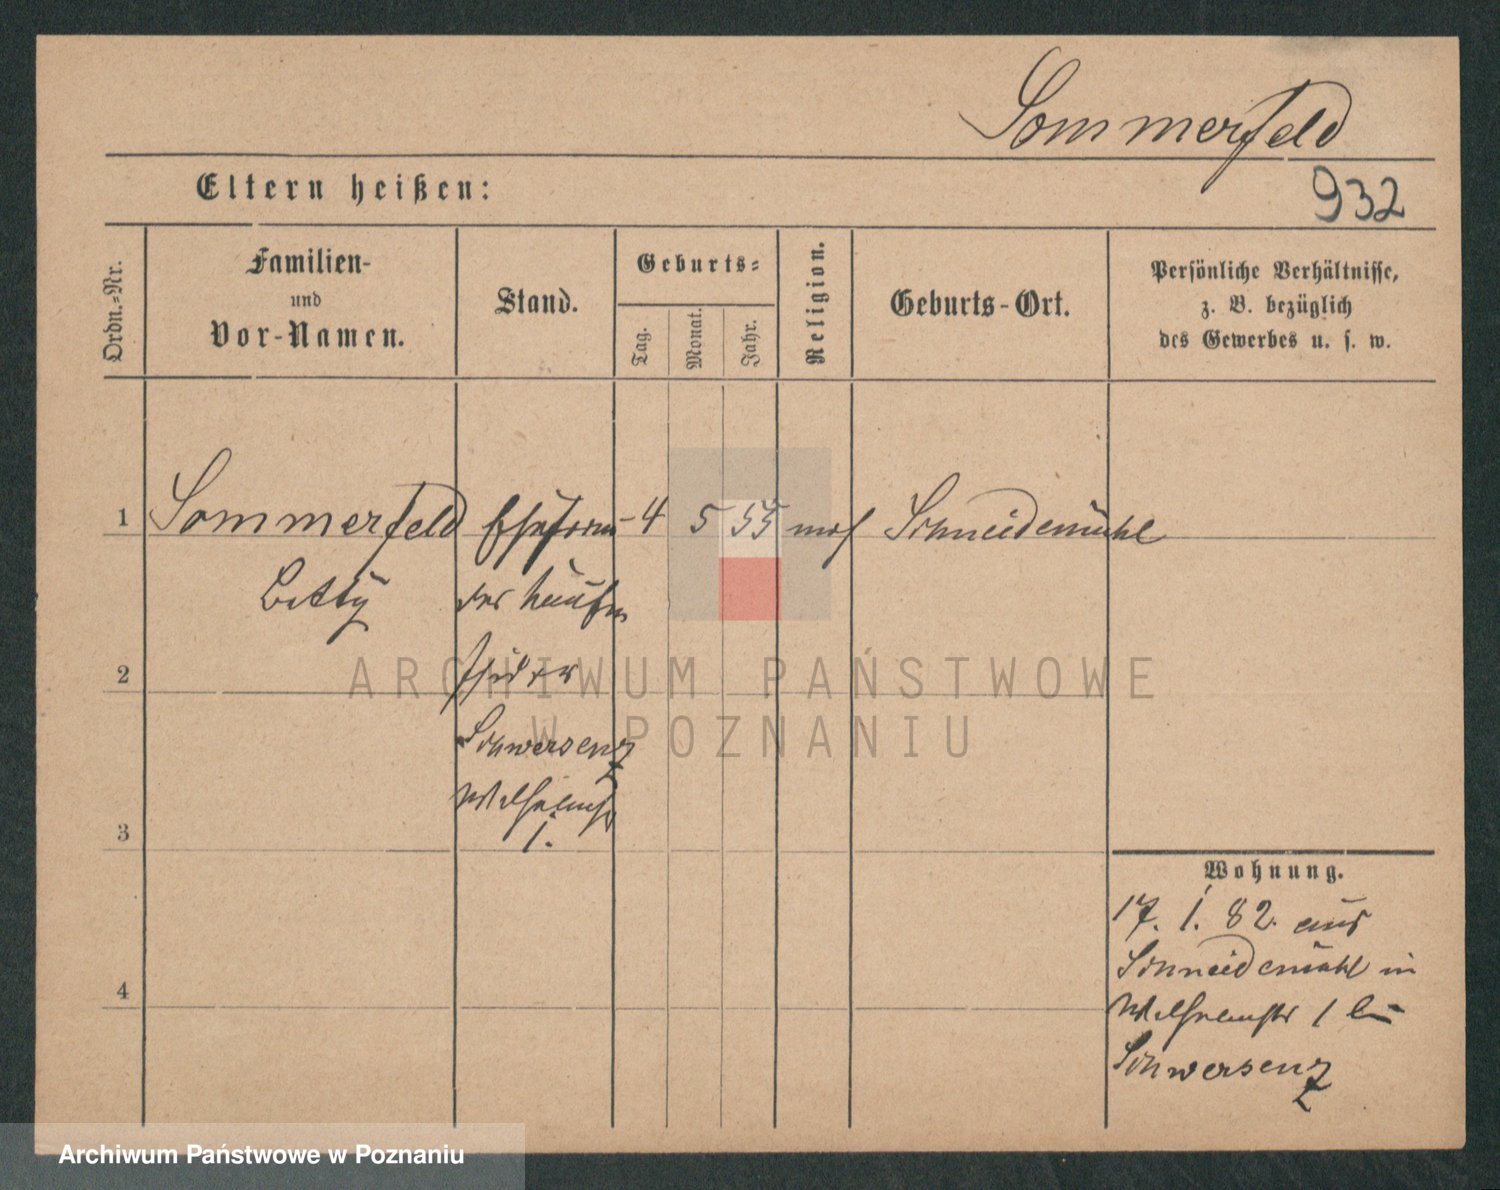 Sommerfeld
932
Eltern heißen:
Ordn.=Nr.
Familien-
und
Vor-Namen.
Stand.
Geburts=
Tag.
Monat.
Jahr.
Religion.
Geburts-Ort.
Persönliche Verhältnisse,
z. B. bezüglich
des Gewerbes u. s. w.
1 Sommerfeld Ehefrau 4 5 55 mos Schneidemühl
Betty
des Kaufm
2
Isidor
Schwersenz
Wilhelmstr
1.
3
4
Wohnung.
17. 1. 82. aus
Schneidemühl in
Wilhelmstr 1 bei
Schwersenz
ARCHIWUM PAŃSTWOWE
W POZNANIU
Archiwum Państwowe w Poznaniu